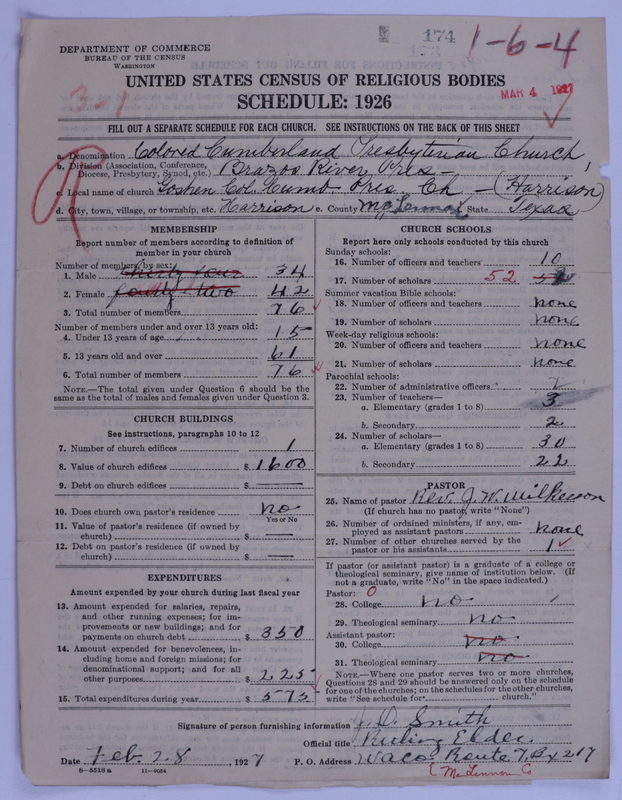 174
1-6-4
DEPARTMENT OF COMMERCE
BUREAU OF THE CENSUS
WASHINGTON
MAR 4 1927
3-1
UNITED STATES CENSUS OF RELIGIOUS BODIES
SCHEDULE: 1926
FILL OUT A SEPARATE SCHEDULE FOR EACH CHURCH. SEE INSTRUCTIONS ON THE BACK OF THIS SHEET
a. Denomination Colored Cumberland Presbyterian Church
b. Division (Association, Conference, Diocese, Presbytery, Synod, etc.) Brazos River Pres-
c. Local name of church Goshen Col. Cumb- Pres. Ch - (Harrison)
d. City, town, village, or township, etc. Harrison e. County McLennan State Texas
MEMBERSHIP
Report number of members according to definition of
member in your church
Number of members by sex:
1. Male thirty four 34
2. Female fourty-two 42
3. Total number of members 76
Number of members under and over 13 years old:
4. Under 13 years of age 15
5. 13 years old and over 61
6. Total number of members 76
NOTE.—The total given under Question 6 should be the
same as the total of males and females given under Question 3.
CHURCH BUILDINGS
See instructions, paragraphs 10 to 12
7. Number of church edifices 1
8. Value of church edifices $ 1600
9. Debt on church edifices $ —
10. Does church own pastor's residence? no
Yes or No
11. Value of pastor's residence (if owned by
church) $ —
12. Debt on pastor's residence (if owned by
church) $ —
EXPENDITURES
Amount expended by your church during last fiscal year
13. Amount expended for salaries, repairs,
and other running expenses; for im-
provements or new buildings; and for
payments on church debt $ 350
14. Amount expended for benevolences, in-
cluding home and foreign missions; for
denominational support; and for all
other purposes $ 225
15. Total expenditures during year $ 575
CHURCH SCHOOLS
Report here only schools conducted by this church
Sunday schools:
16. Number of officers and teachers 10
17. Number of scholars 52
Summer vacation Bible schools:
18. Number of officers and teachers none
19. Number of scholars none
Week-day religious schools:
20. Number of officers and teachers none
21. Number of scholars none
Parochial schools:
22. Number of administrative officers
23. Number of teachers—
a. Elementary (grades 1 to 8) 3
b. Secondary 2
24. Number of scholars—
a. Elementary (grades 1 to 8) 30
b. Secondary 22
PASTOR
25. Name of pastor Rev. J. W. Wilkerson
(If church has no pastor, write "None")
26. Number of ordained ministers, if any, em-
ployed as assistant pastors none
27. Number of other churches served by the
pastor or his assistants 1
If pastor (or assistant pastor) is a graduate of a college or
theological seminary, give name of institution below. (If
not a graduate, write "No" in the space indicated.)
Pastor: 0
28. College no
29. Theological seminary no
Assistant pastor:
30. College no
31. Theological seminary no
NOTE.—Where one pastor serves two or more churches,
Questions 28 and 29 should be answered only on the schedule
for one of the churches; on the schedules for the other churches,
write "See schedule for church."
Signature of person furnishing information J. D. Smith
Official title Ruling Elder
Date Feb. 28, 1927 P. O. Address Waco, Route 7, Bx 217
8-5518a 11-9054
(McLennon Co